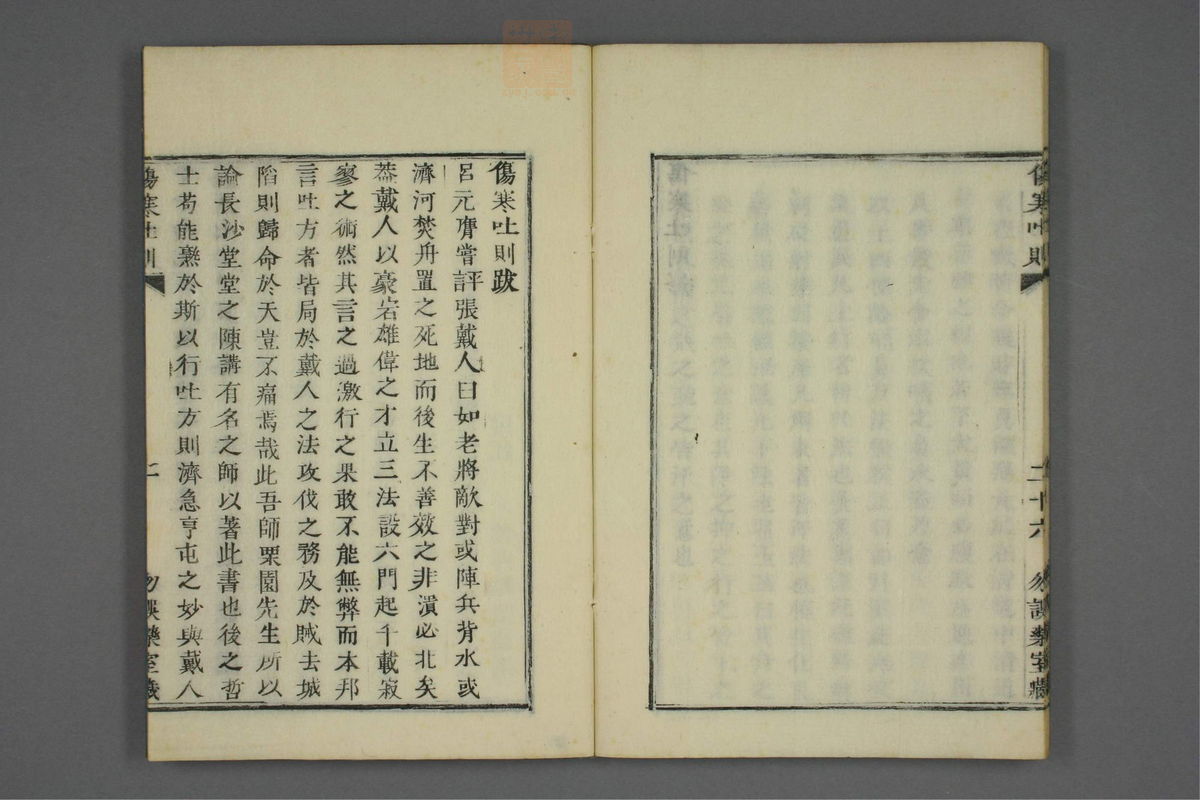 傷寒吐則
二十六
勿誤藥室藏
傷寒吐則跋
呂元膺嘗評張戴人曰如老將敵對或陣兵背水或
濟河焚舟置之死地而後生不善效之非潰必北矣
蓋戴人以豪岩雄偉之才立三法設六門起千載寂
寥之術然其言之過激行之果敢不能無弊而本邦
言吐方者皆局於戴人之法攻伐之務及於賊去城
陷則歸命於天豈不痛焉哉此吾師栗園先生所以
論長沙堂堂之陳講有名之師以著此書也後之哲
士苟能藥於斯以行吐方則濟急亨屯之妙與戴人
傷寒吐則
二
勿誤藥室藏